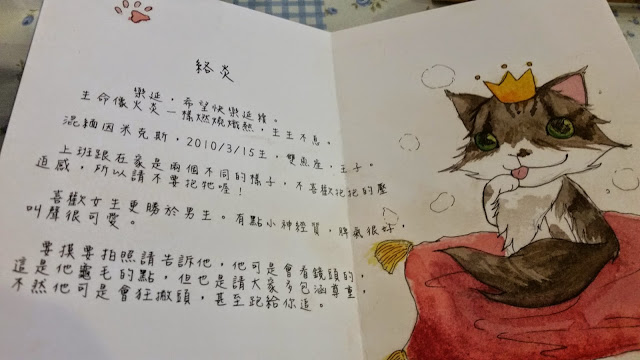 絡炎
樂延，希望快樂延續。
生命像火炎一樣燃燒熾熱，生生不息。
混緬因米克斯，2010/3/15生，雙魚座，王子。
上班跟在家是兩個不同的樣子，不喜歡抱抱的壓
迫感，所以請不要抱牠喔！
喜歡女生更勝於男生。有點小神經質，脾氣很好，
叫聲很可愛。
要摸要拍照請告訴他，他可是會看鏡頭的，
這是他龜毛的點，但也是請大家多包涵尊重，
不然他可是會狂撇頭，甚至跑給你追。